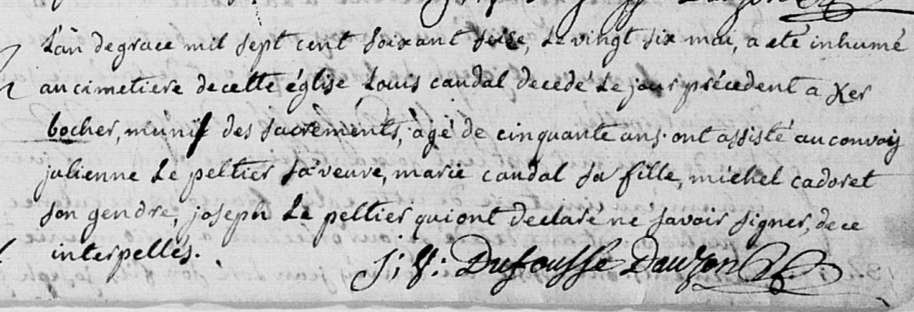 L'an de grace mil sept cent soixant seise, Le vingt six mai, a eté inhumé
au cimetiere de cette église Louis caudal decedé Le jour précedent a Ker
bocher, muni des sacrements, agé de cinquante ans. ont assisté au convoy
julienne Le peltier sa veuve, marie caudal sa fille, michel cadoret
son gendre, joseph Le peltier qui ont declaré ne savoir signer, de ce
interpellés.